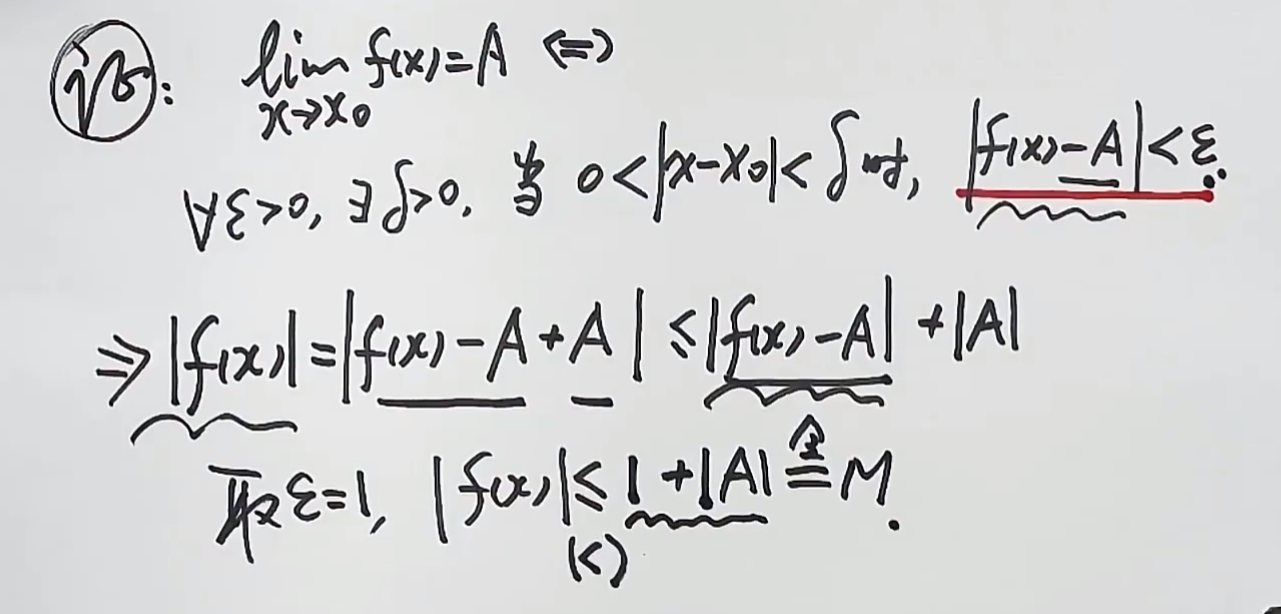 证: lim f(x)=A ⇔
x→x₀
∀ε>0, ∃δ>0, 当 0<|x-x₀|<δ时, |f(x)-A|<ε.
⇒|f(x)|=|f(x)-A+A|≤|f(x)-A|+|A|
取ε=1, |f(x)|≤1+|A|≜M.
(<)